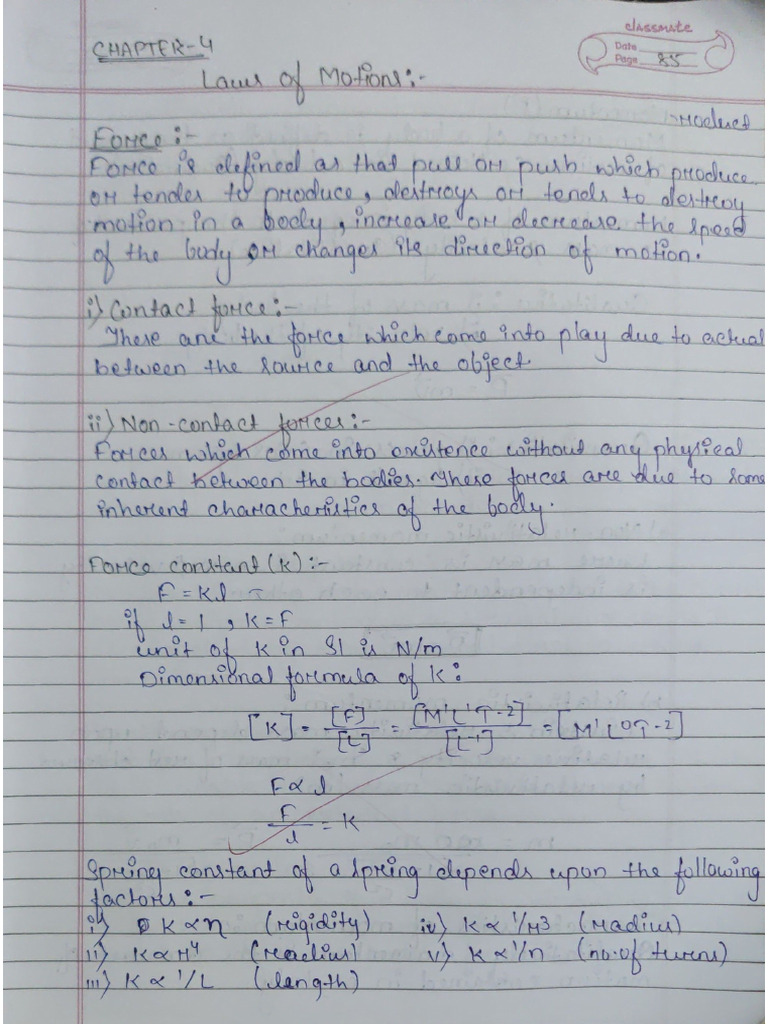 classmate
Date
Page 85
CHAPTER-4
Laws of Motions:-
product
Force:-
Force is defined as that pull or push which produce
or tender to produce, destroys or tends to destroy
motion in a body, increase or decrease the speed
of the body or changes its direction of motion.
i) Contact force:-
These are the force which come into play due to actual
between the source and the object.
ii) Non-contact forces:-
Forces which come into existence without any physical
contact between the bodies. These forces are due to some
inherent characheristics of the body.
Force constant (K):-
F = Kl
if l = 1, K = F
unit of K in SI is N/m
Dimensional formula of K:
[K] = [F]/[L] = [M¹L¹T-2]/[L¹] = [M¹L⁰T-2]
F ∝ l
F/l = K
Spring constant of a spring depends upon the following
factors:-
i) K ∝ η (rigidity) iv) K ∝ 1/r³ (radius)
ii) K ∝ r⁴ (readius) v) K ∝ 1/n (no. of turns)
iii) K ∝ 1/L (length)